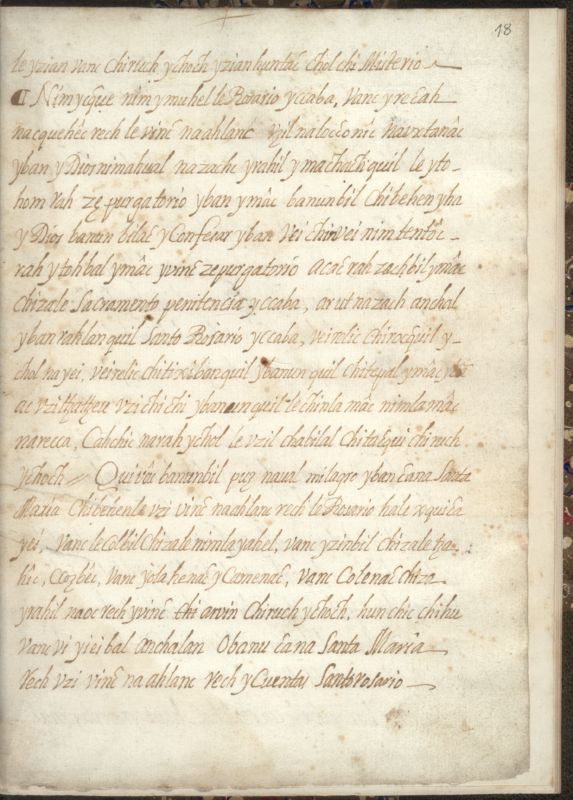 18
le yzian vanc chiruch ychoch yzian huntac chol chi Misterio
Nim ycque nim ymuhel le Rosario yccaba, vanc yrecah
nacquehec rech le vinc naahlanc vzil naloconic
yban y Dios nimahual nazach yrahil ymachach quil le yto-
hom rah ze purgatorio yban ymac banunbil chibehen yha
y Dios banun bilac y Confesar yban vei chinvei nim tentoc
rah ytohbal ymac yvinc ze purgatorio acac rah zachbil ymac
chizale Sacramento penitencia yccaba, arut nazach anchal
yban rahlanquil Santo Rosario yccaba, veirelic chirocquil y-
chol nayei, veirelic chitixibanquil ybanunquil chitequal ymac
ac vzil vzi chi chi ybanunquil le chinla mac nimla mac
narecca, Cahchic narah ychol le vzil chabilal chitacqui chiruch
ychoch Qui vui banunbil puz naual milagro yban cana Santa
Maria chibehenle vzi vinc naahlanc rech le Rosario hale xquica
yei, vanc le colbil chizale nimla yahel, vanc yzinbil chizale
hic, vanc yolahenac y Camenac, vanc Colenac chiza
yrahil naoc rech yvinc chi anvin Chiruch ychoch, hunchic chihu
vanc vi yieibal anchalan Obanu cana Santa Maria
rech vzi vinc naahlanc rech y Cuentas Santo rosario